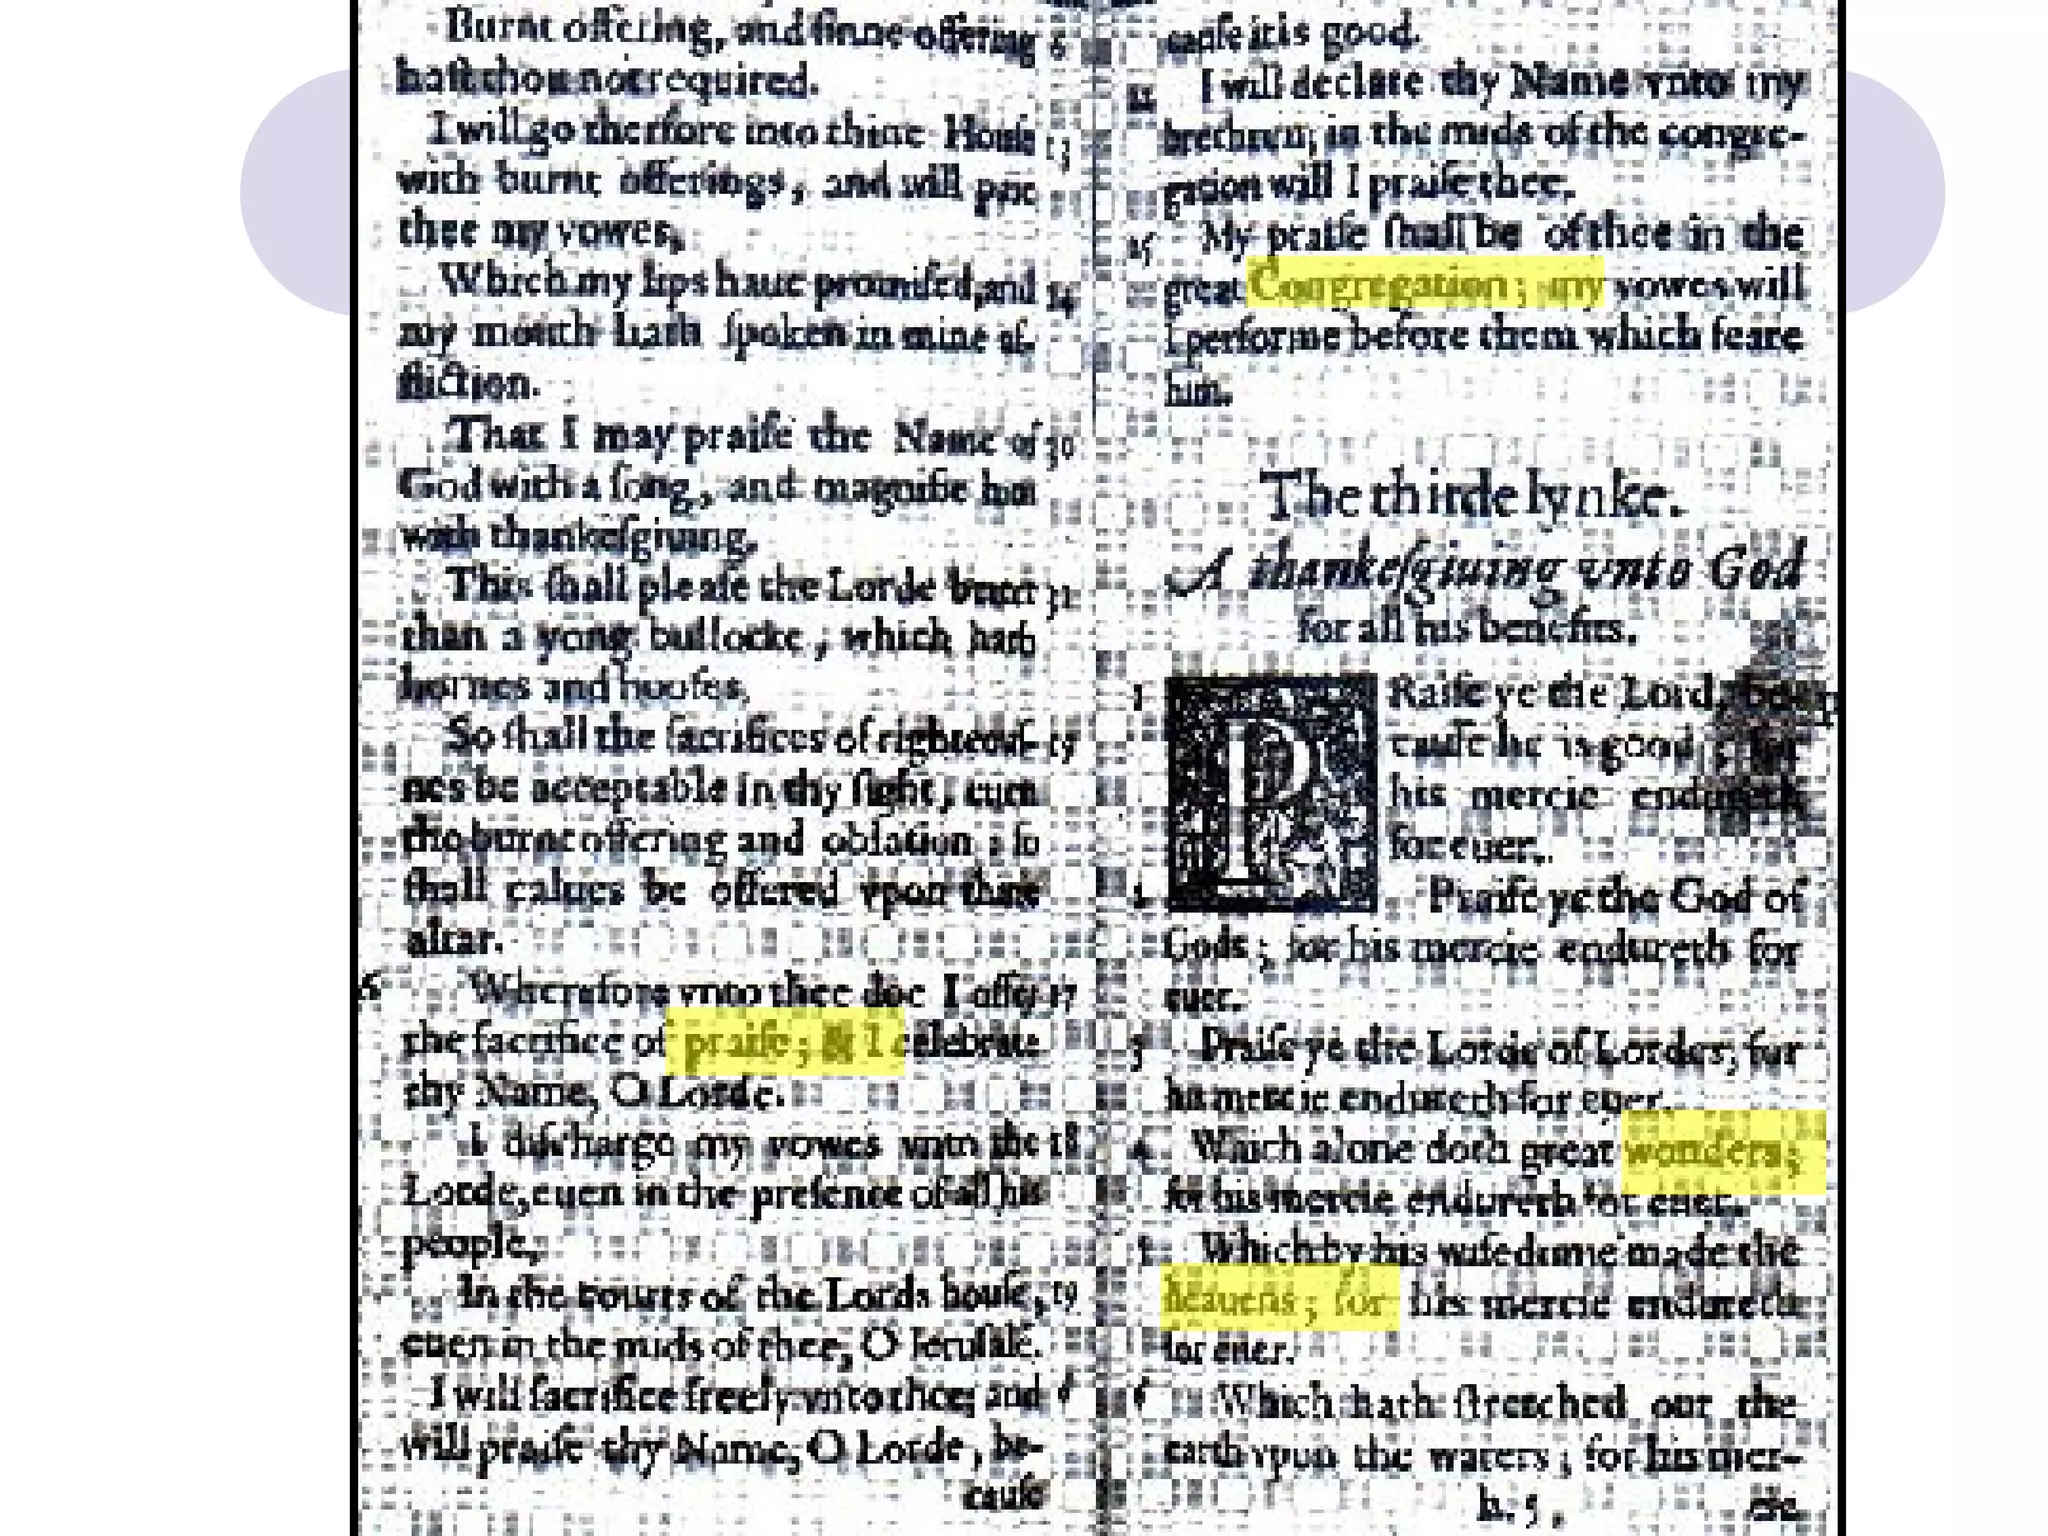 Burnt offering, and sinne offering 6
hast thou not required.
I will go therfore into thine House 13
with burnt offerings, and will pay
thee my vowes,
Which my lips haue promised, and 14
my mouth hath spoken in mine af-
fliction.
That I may praise the Name of 30
God with a song, and magnifie him
with thankesgiuing.
This shall please the Lorde better 31
than a yong bullocke, which hath
hornes and hoofes.
So shall the sacrifices of righteous- 19
nes be acceptable in thy sight, euen
the burnt offering and oblation; so
shall calues be offered vpon thine
altar.
Wherefore vnto thee doe I offer 17
the sacrifice of praise; & I celebrate
thy Name, O Lorde.
I discharge my vowes vnto the 18
Lorde, euen in the presence of all his
people,
In the courts of the Lords house, 19
euen in the mids of thee, O Ierusalē.
I will sacrifice freely vnto thee; and 6
will praise thy Name, O Lorde, be-
cause
cause it is good.
22 I will declare thy Name vnto my
brethren; in the mids of the congre-
gation will I praise thee.
25 My praise shall be of thee in the
great Congregation; my vowes will
I performe before them which feare
him.
The thirde lynke.
A thankesgiuing vnto God
for all his benefits.
1 PRaise ye the Lord, be-
cause he is good; for
his mercie endureth
for euer.
Praise ye the God of
Gods; for his mercie endureth for
euer.
3 Praise ye the Lorde of Lordes; for
his mercie endureth for euer.
4 Which alone doth great wonders;
for his mercie endureth for euer.
5 Which by his wisedome made the
heauens; for his mercie endureth
for euer.
6 Which hath streached out the
earth vpon the waters; for his mer-
h. 5. cie